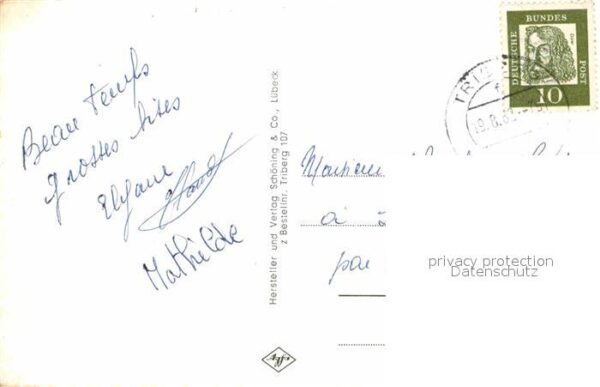 Beau temps
grosses bises
Elyane
Mathilde
Hersteller und Verlag Schöning & Co., Lübeck
z Bestellnr. Triberg 107
DEUTSCHE BUNDES POST
Dürer
10
TRIB
19.8.6
Monsieur
à
par
privacy protection
Datenschutz
Agfa